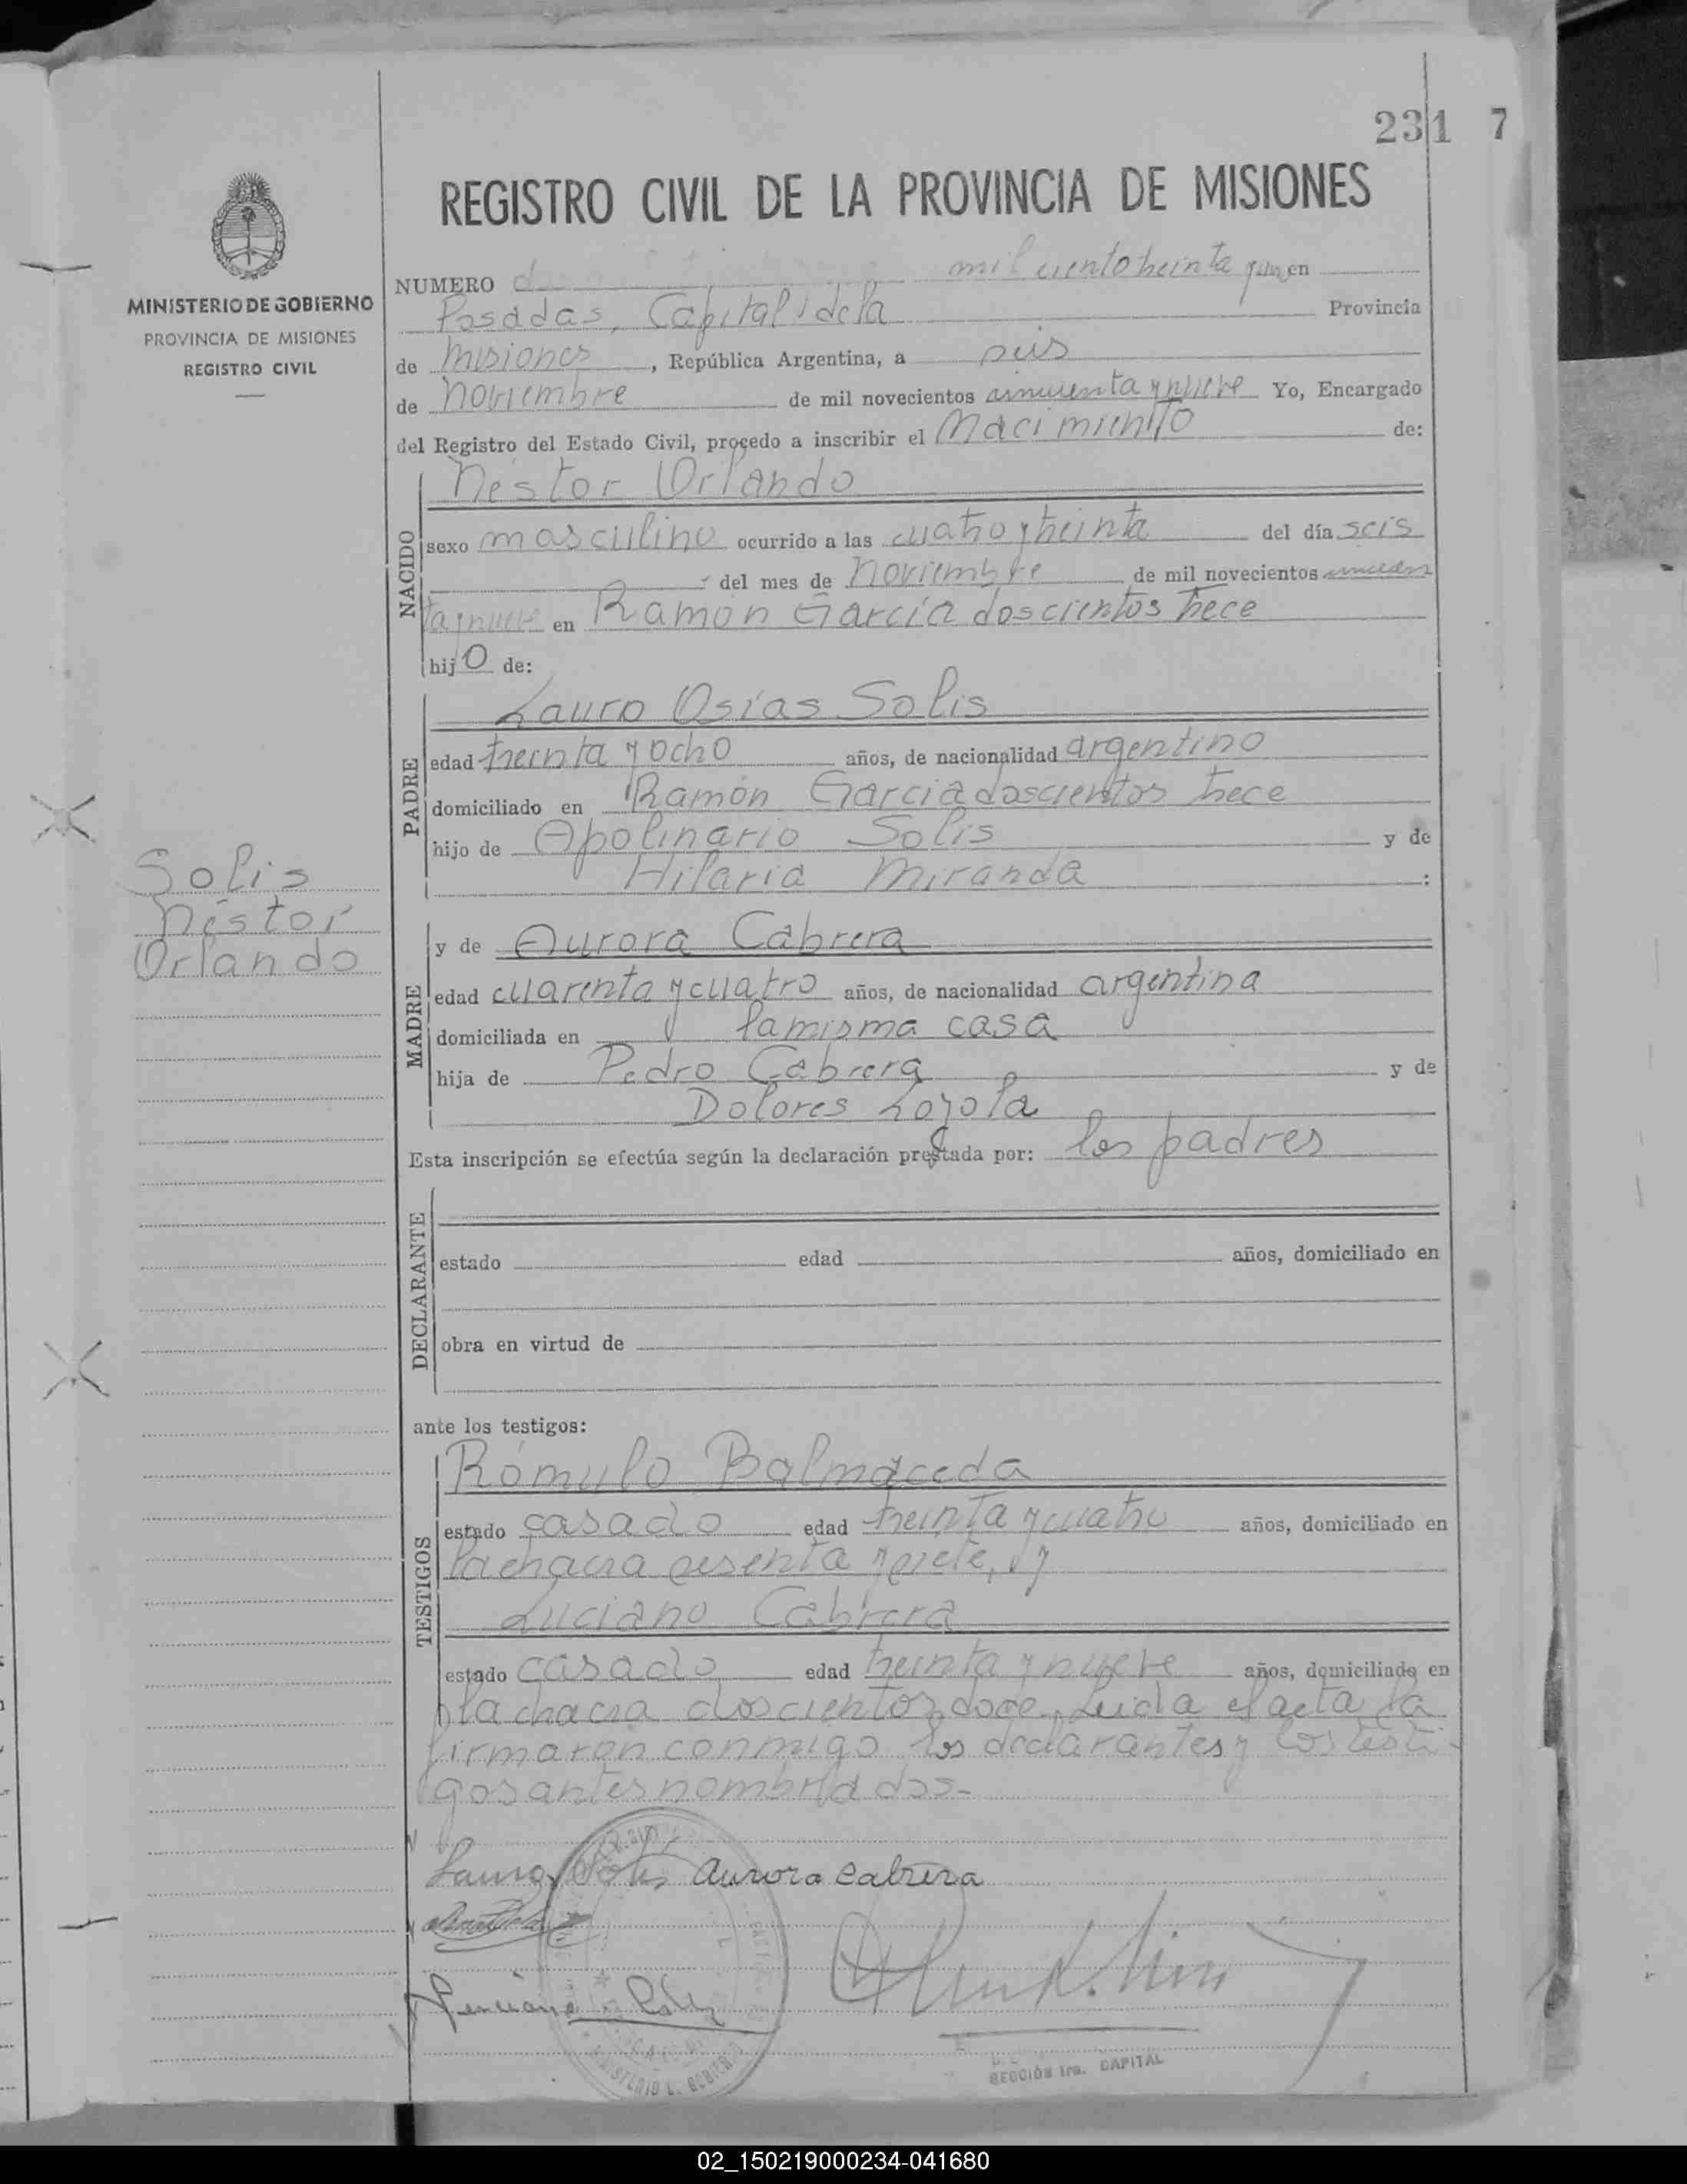 231 7
REGISTRO CIVIL DE LA PROVINCIA DE MISIONES
MINISTERIO DE GOBIERNO
PROVINCIA DE MISIONES
REGISTRO CIVIL
NUMERO mil ciento treinta y en
Posadas, Capital de la Provincia
de Misiones, República Argentina, a seis
de noviembre de mil novecientos cincuenta y nueve Yo, Encargado
del Registro del Estado Civil, procedo a inscribir el Nacimiento de:
NACIDO
Néstor Orlando
sexo masculino ocurrido a las cuatro y treinta del día seis
del mes de noviembre de mil novecientos cincuen
ta y nueve en Ramón García doscientos trece
hijo de:
PADRE
Lauro Osías Solis
edad treinta y ocho años, de nacionalidad argentino
domiciliado en Ramón García doscientos trece
hijo de Apolinario Solis y de
Hilaria Miranda :
Solis
Néstor
Orlando
MADRE
y de Aurora Cabrera
edad cuarenta y cuatro años, de nacionalidad argentina
domiciliada en la misma casa
hija de Pedro Cabrera y de
Dolores Loyola
Esta inscripción se efectúa según la declaración prestada por: los padres
DECLARANTE
estado edad años, domiciliado en
obra en virtud de
ante los testigos:
TESTIGOS
Rómulo Balmaceda
estado casado edad treinta y cuatro años, domiciliado en
la chacra sesenta y siete, y
Luciano Cabrera
estado casado edad treinta y nueve años, domiciliado en
la chacra doscientos doce. Leida el acta la
firmaron conmigo los declarantes y los testi-
gos antes nombrados-
Lauro Solis Aurora Cabrera
SECCIÓN 1ra. CAPITAL
02_150219000234-041680